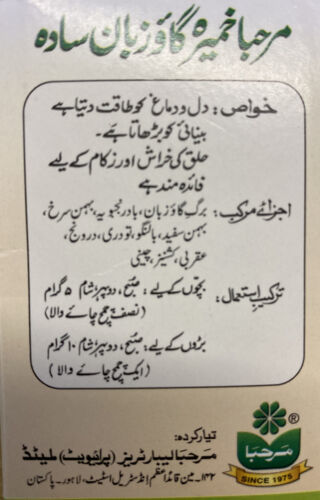 مرحبا خمیرہ گاؤزبان سادہ
خواص: دل و دماغ کو طاقت دیتا ہے
بینائی کو بڑھاتا ہے۔
حلق کی خراش اور زکام کے لیے
فائدہ مند ہے
اجزائے مرکب: برگِ گاؤزبان، بادرنجبویہ، بہمن سرخ،
بہمن سفید، بالنگو، تودری، درونج،
عقربی، کشنیز، چینی
ترکیب استعمال: بچّوں کے لیے: صبح، دوپہر، شام ۵ گرام
(نصف چمچ چائے والا)
بڑوں کے لیے: صبح، دوپہر، شام ۱۰ گرام
(ایک چمچ چائے والا)
تیار کردہ:
مرحبا لیبارٹریز (پرائیویٹ) لمیٹڈ
۱۴۲۔ مین قائداعظم انڈسٹریل اسٹیٹ، لاہور۔ پاکستان
®
مرحبا
SINCE 1975